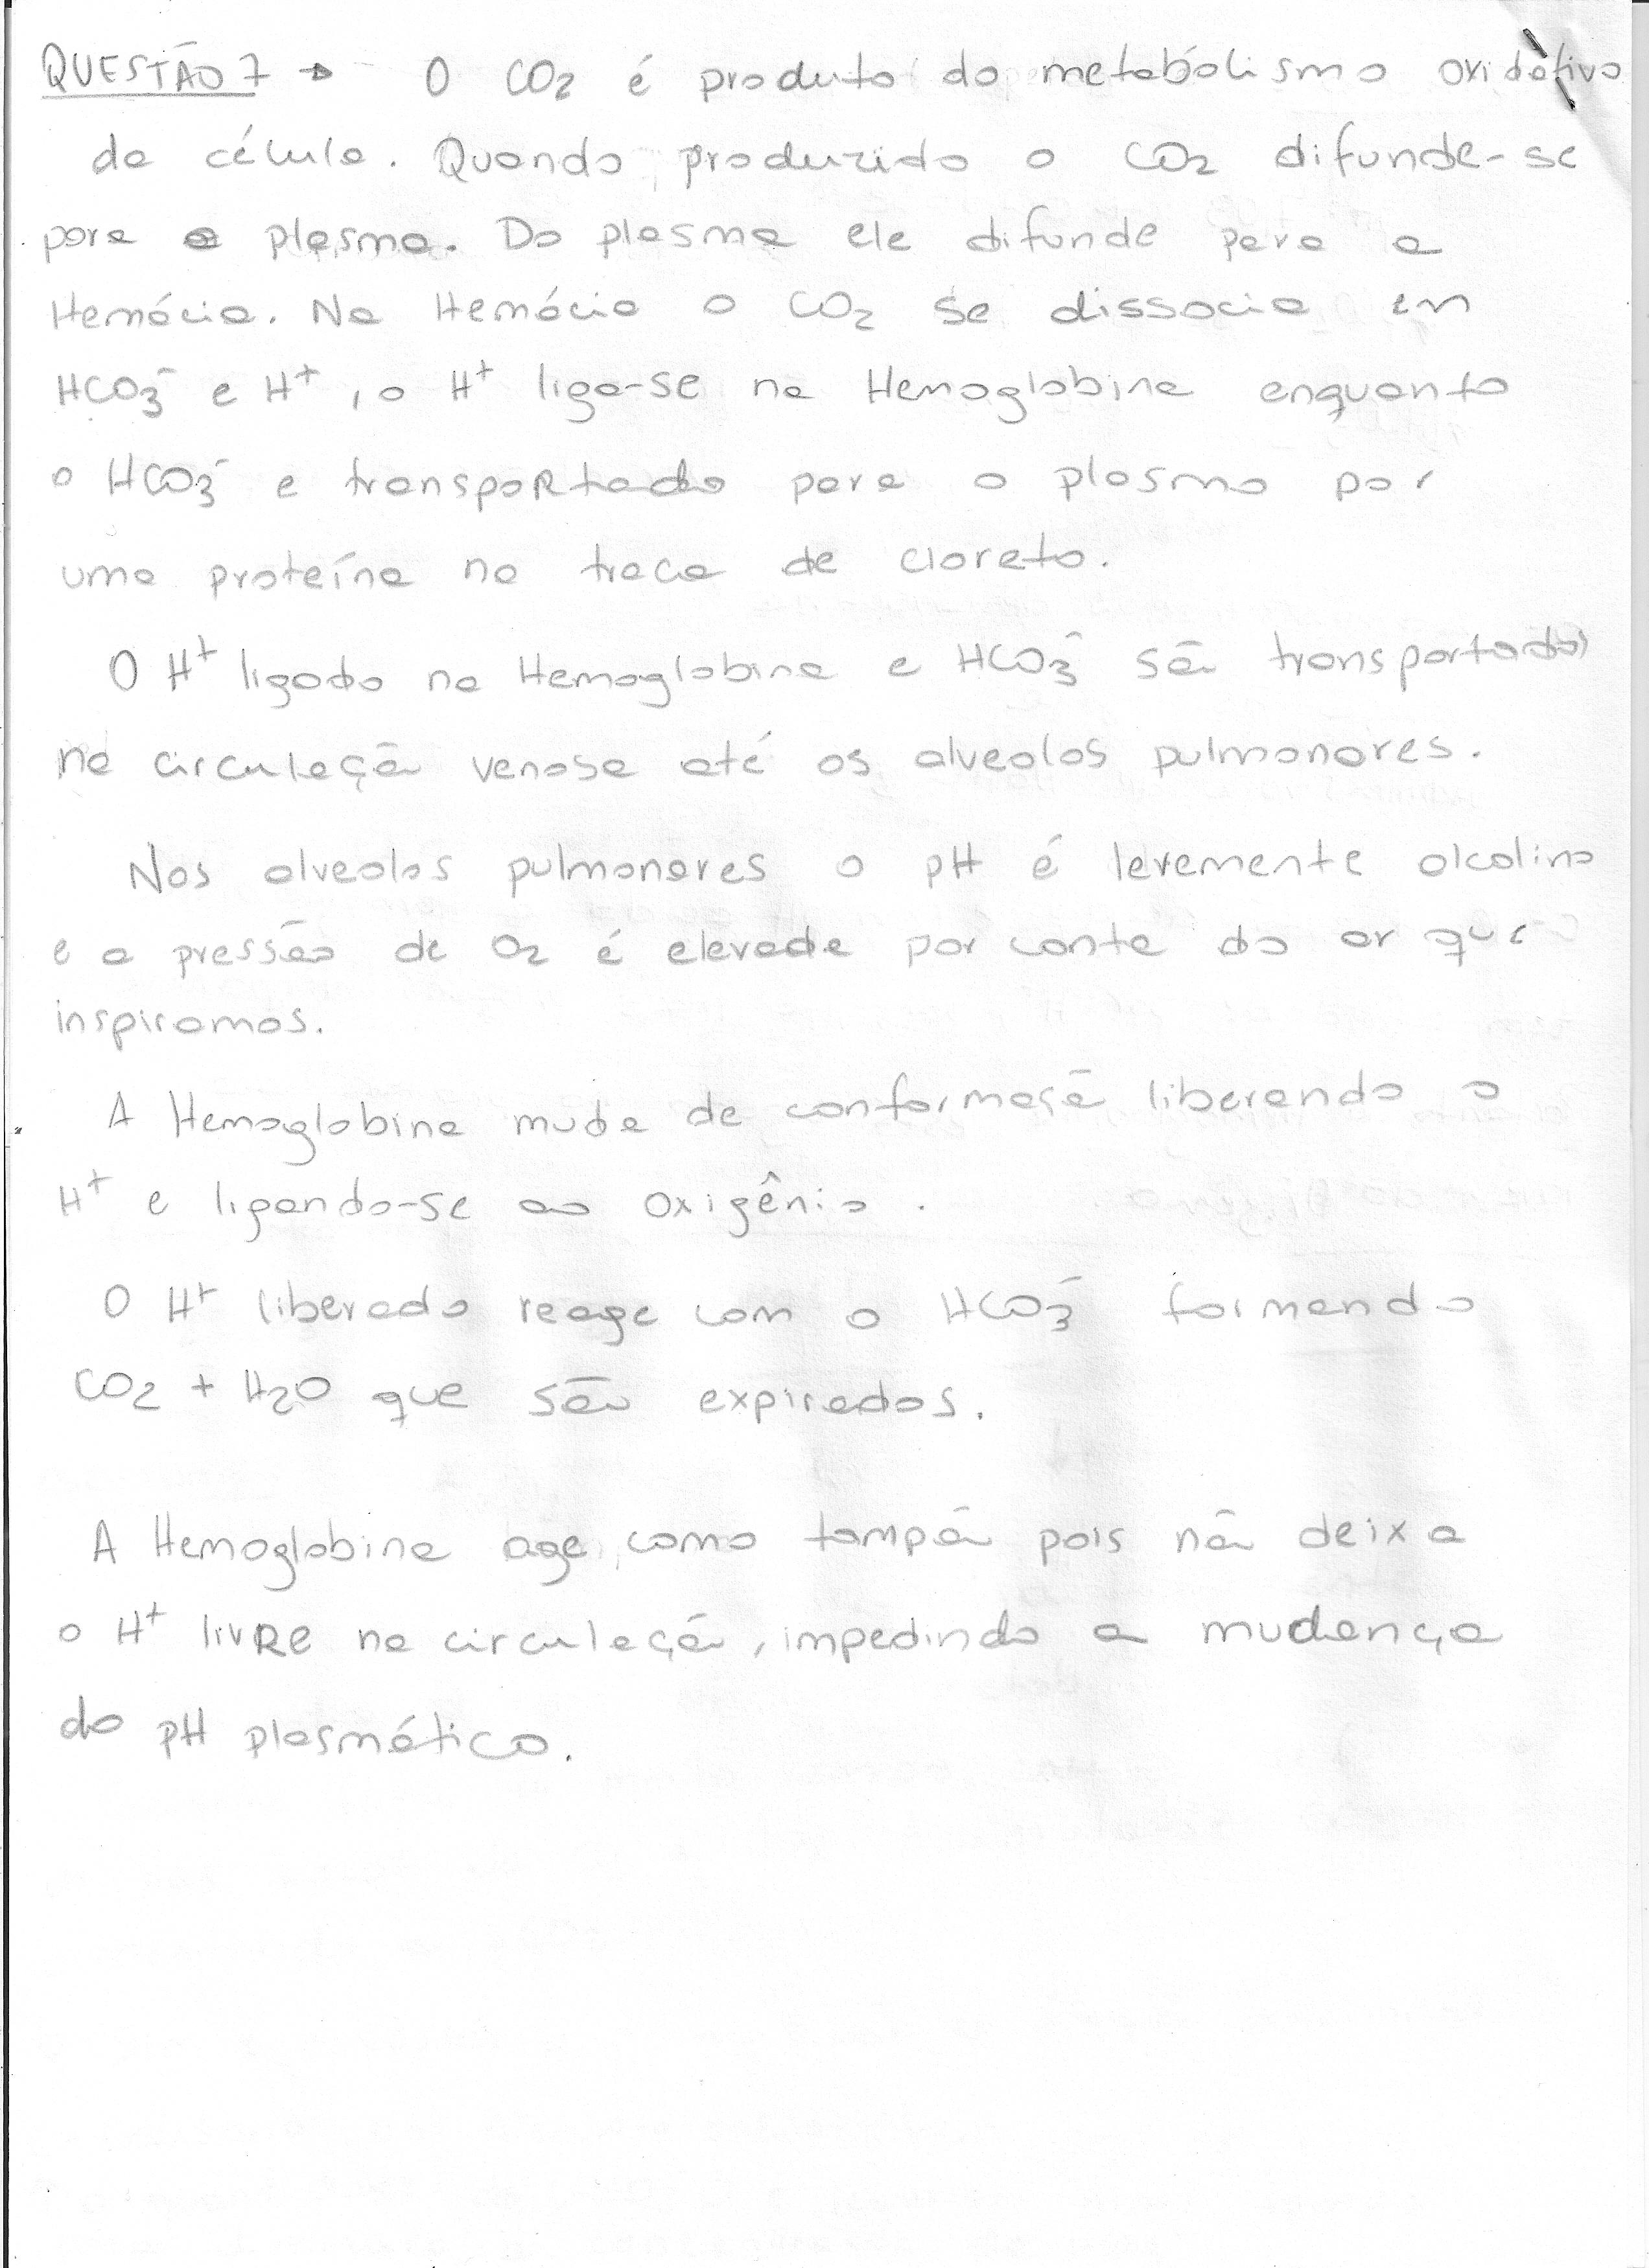 QUESTÃO 7 → O CO2 é produto do metabolismo oxidativo
da célula. Quando produzido o CO2 difunde-se
para o plasma. Do plasma ele difunde para a
Hemácia. Na Hemácia o CO2 se dissocia em
HCO3⁻ e H⁺, o H⁺ liga-se na Hemoglobina enquanto
o HCO3⁻ e transportado para o plasmo por
uma proteína na traca de cloreto.
O H⁺ ligado na Hemoglobina e HCO3⁻ são transportados
na circulação venosa até os alveolos pulmonares.
Nos alveolos pulmonares o pH é levemente alcalino
e a pressão de O2 é elevada por conta do ar que
inspiramos.
A Hemoglobina muda de conformaçã liberando o
H⁺ e ligando-se ao oxigênio.
O H⁺ liberado reage com o HCO3⁻ formando
CO2 + H2O que são expirados.
A Hemoglobina age como tampão pois não deixa
o H⁺ livre na circulação, impedindo a mudança
do pH plasmático.